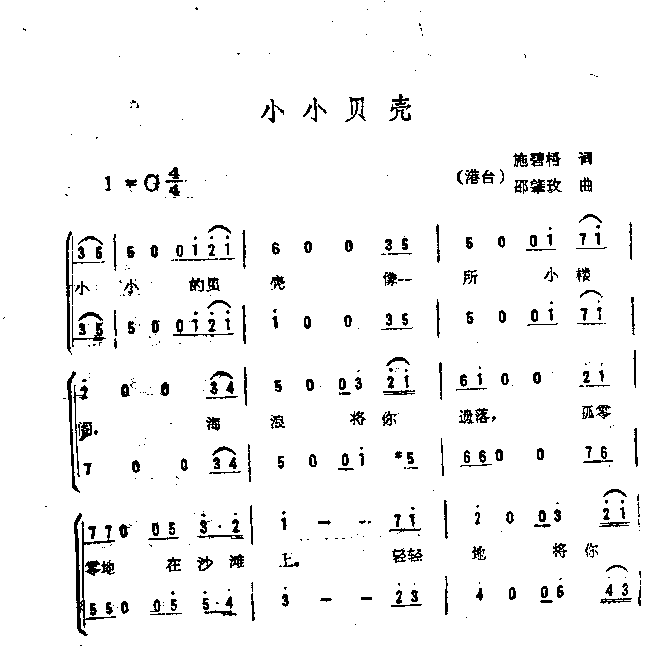 小小贝壳
1=G 4/4
(港台) 施碧梧 词
邵肇玫 曲
3 5 | 5 0 0 1̇ 2̇ 1̇ | 6 0 0 3 5 | 5 0 0 1̇ 7 1̇ |
小 小 的贝 壳 像-- 所 小 楼
3 5 | 5 0 0 1̇ 2̇ 1̇ | 1̇ 0 0 3 5 | 5 0 0 1̇ 7 1̇ |
2̇ 0 0 3 4 | 5 0 0 3̇ 2̇ 1̇ | 6 1̇ 0 0 2̇ 1̇ |
阁, 海 浪 将你 遗落, 孤零
7 0 0 3 4 | 5 0 0 1̇ #5 | 6 6 0 0 7 6 |
7 7 0 0 5 3̇·2̇ | 1̇ - - 7 1̇ | 2̇ 0 0 3̇ 2̇ 1̇ |
零地 在沙滩 上。 轻轻 地 将你
5 5 0 0 5 5·4 | 3 - - 2 3 | 4 0 0 6 4 3 |